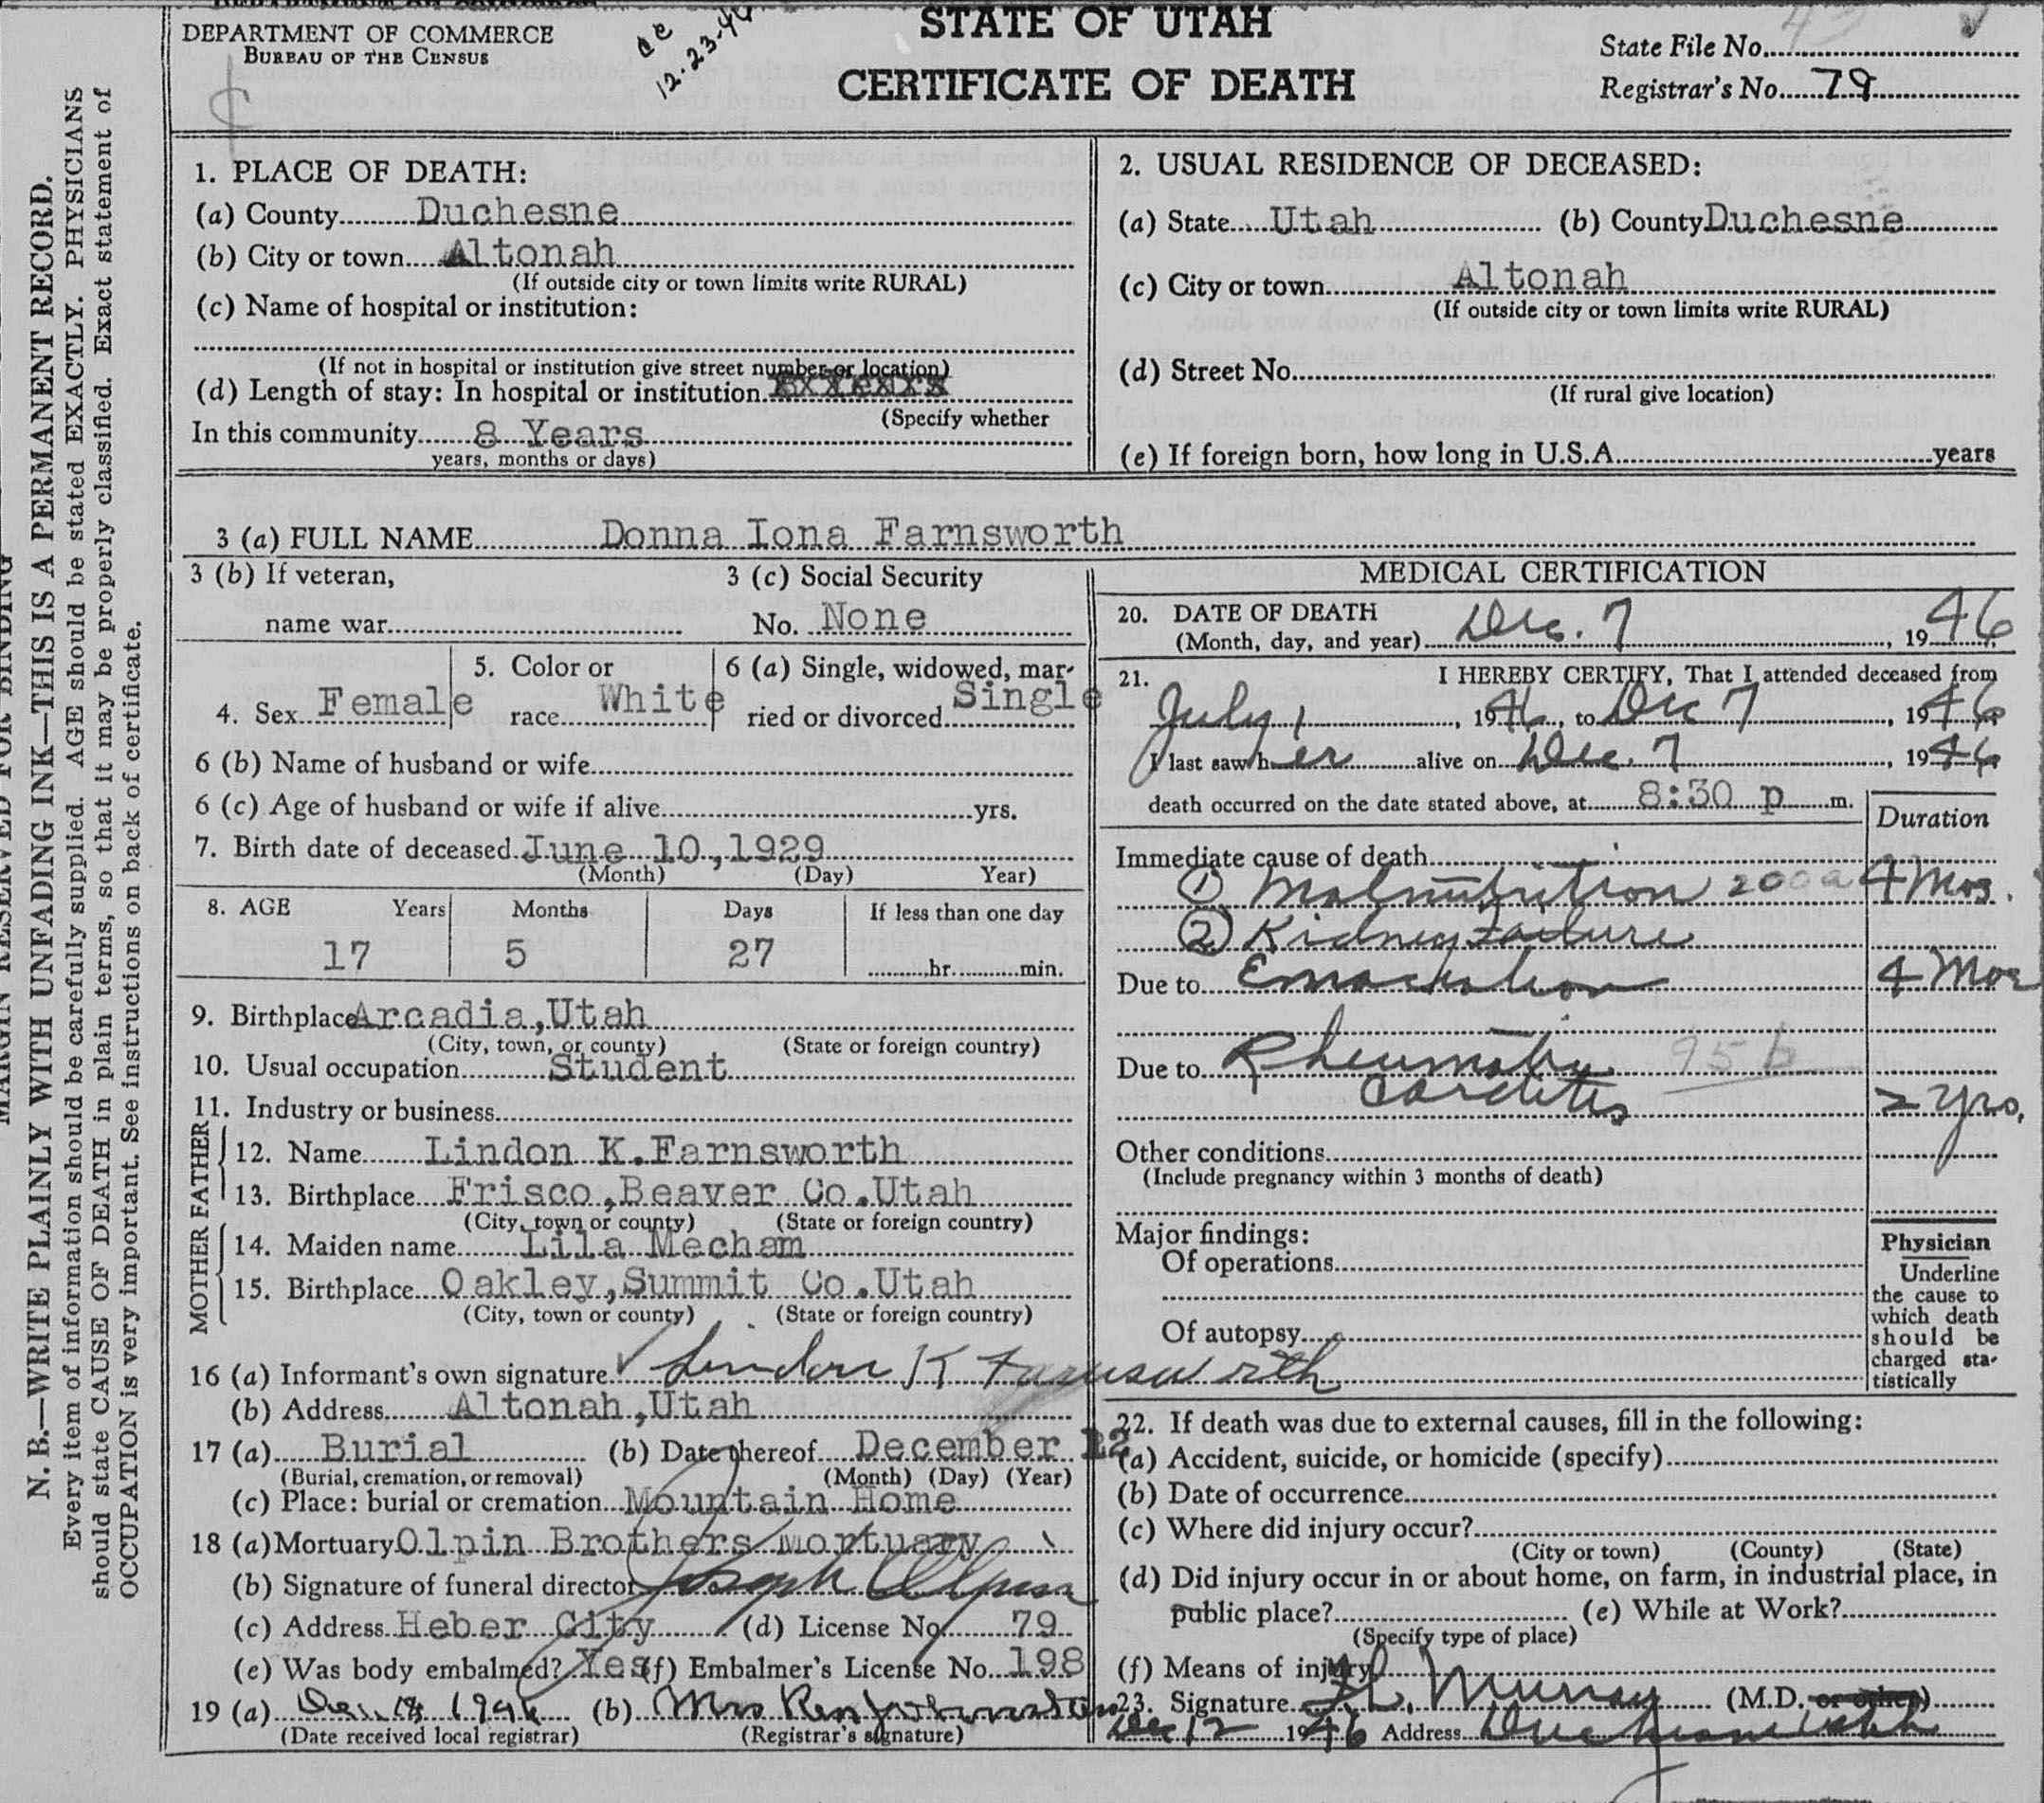 DEPARTMENT OF COMMERCE
BUREAU OF THE CENSUS
12-23-46
STATE OF UTAH
CERTIFICATE OF DEATH
State File No.
Registrar's No. 79
MARGIN RESERVED FOR BINDING
N. B.—WRITE PLAINLY WITH UNFADING INK—THIS IS A PERMANENT RECORD.
Every item of information should be carefully supplied. AGE should be stated EXACTLY. PHYSICIANS
should state CAUSE OF DEATH in plain terms, so that it may be properly classified. Exact statement of
OCCUPATION is very important. See instructions on back of certificate.
1. PLACE OF DEATH:
(a) County Duchesne
(b) City or town Altonah
(If outside city or town limits write RURAL)
(c) Name of hospital or institution:
(If not in hospital or institution give street number or location)
(d) Length of stay: In hospital or institution
(Specify whether
In this community 8 Years
years, months or days)
2. USUAL RESIDENCE OF DECEASED:
(a) State Utah (b) County Duchesne
(c) City or town Altonah
(If outside city or town limits write RURAL)
(d) Street No.
(If rural give location)
(e) If foreign born, how long in U.S.A. years
3 (a) FULL NAME Donna Iona Farnsworth
3 (b) If veteran, 3 (c) Social Security
name war No. None
4. Sex Female 5. Color or race White 6 (a) Single, widowed, married or divorced Single
6 (b) Name of husband or wife
6 (c) Age of husband or wife if alive yrs.
7. Birth date of deceased June 10, 1929
(Month) (Day) Year)
8. AGE Years Months Days If less than one day
17 5 27 hr. min.
9. Birthplace Arcadia, Utah
(City, town, or county) (State or foreign country)
10. Usual occupation Student
11. Industry or business
FATHER
12. Name Lindon K. Farnsworth
13. Birthplace Frisco, Beaver Co. Utah
(City, town or county) (State or foreign country)
MOTHER
14. Maiden name Lila Mecham
15. Birthplace Oakley, Summit Co. Utah
(City, town or county) (State or foreign country)
16 (a) Informant's own signature Lindon K Farnsworth
(b) Address Altonah, Utah
17 (a) Burial (b) Date thereof December 12
(Burial, cremation, or removal) (Month) (Day) (Year)
(c) Place: burial or cremation Mountain Home
18 (a) Mortuary Olpin Brothers mortuary
(b) Signature of funeral director Joseph Olpin
(c) Address Heber City (d) License No. 79
(e) Was body embalmed? Yes (f) Embalmer's License No. 198
19 (a) Dec 1946 (b) Mrs Johnston
(Date received local registrar) (Registrar's signature)
MEDICAL CERTIFICATION
20. DATE OF DEATH
(Month, day, and year) Dec. 7, 1946
21. I HEREBY CERTIFY, That I attended deceased from
July 1, 1946, to Dec 7, 1946
I last saw her alive on Dec. 7, 1946
death occurred on the date stated above, at 8:30 p m.
Duration
Immediate cause of death
(1) Malnutrition 200a 4 Mos.
(2) Kidney Failure
Due to Emaciation 4 Mos
Due to Rheumatic 95 b
Carditis 2 yrs.
Other conditions
(Include pregnancy within 3 months of death)
Major findings:
Of operations
Of autopsy
Physician
Underline
the cause to
which death
should be
charged sta-
tistically
22. If death was due to external causes, fill in the following:
(a) Accident, suicide, or homicide (specify)
(b) Date of occurrence
(c) Where did injury occur?
(City or town) (County) (State)
(d) Did injury occur in or about home, on farm, in industrial place, in
public place? (e) While at Work?
(Specify type of place)
(f) Means of injury
23. Signature Murray (M.D. or other)
Dec 12 1946 Address Duchesne Utah